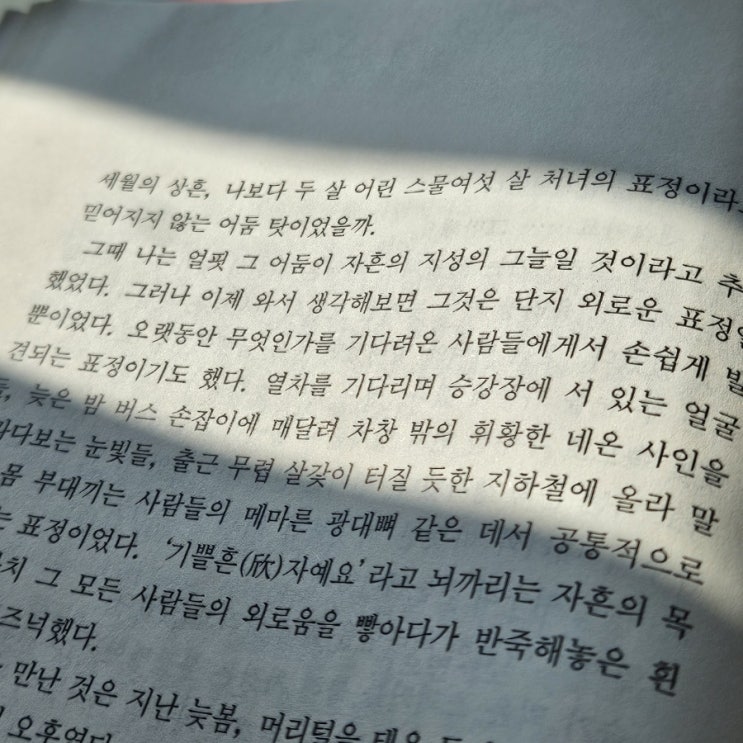 세월의 상흔, 나보다 두 살 어린 스물여섯 살 처녀의 표정이라고
믿어지지 않는 어둠 탓이었을까.
그때 나는 얼핏 그 어둠이 자흔의 지성의 그늘일 것이라고 추
했었다. 그러나 이제 와서 생각해보면 그것은 단지 외로운 표정일
뿐이었다. 오랫동안 무엇인가를 기다려온 사람들에게서 손쉽게 발
견되는 표정이기도 했다. 열차를 기다리며 승강장에 서 있는 얼굴
늦은 밤 버스 손잡이에 매달려 차창 밖의 휘황한 네온 사인을
바라보는 눈빛들, 출근 무렵 살갗이 터질 듯한 지하철에 올라 말
몸 부대끼는 사람들의 메마른 광대뼈 같은 데서 공통적으로
는 표정이었다. ‘기쁠흔(欣)자예요’라고 뇌까리는 자흔의 목
치 그 모든 사람들의 외로움을 빻아다가 반죽해놓은 흰
즈넉했다.
만난 것은 지난 늦봄, 머리털을 태울
오후였다.